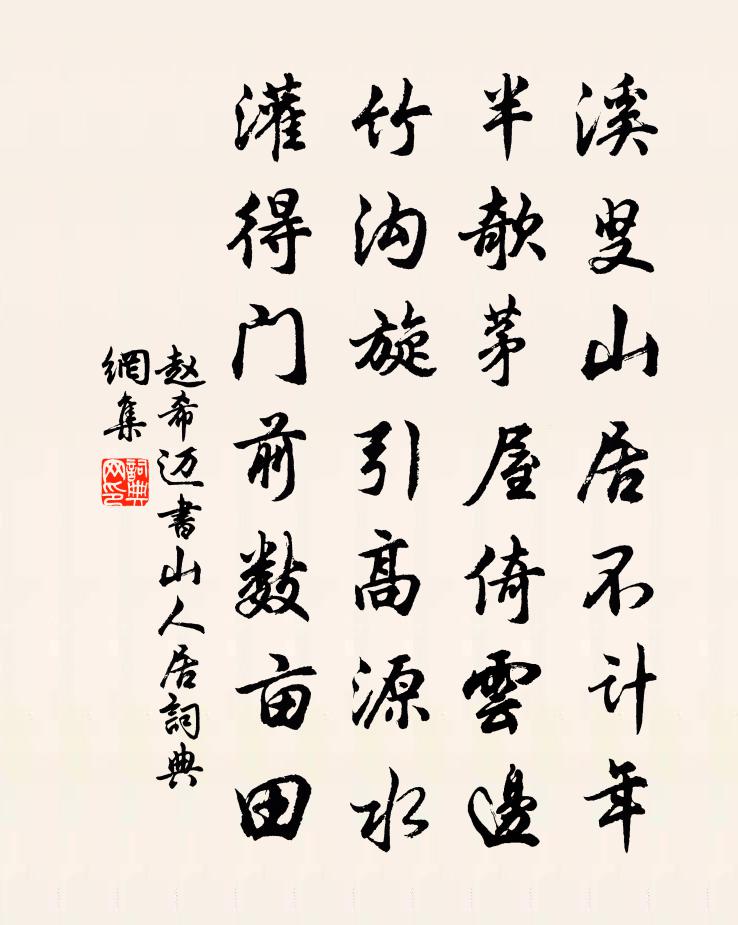 溪叟山居不计年
半欹茅屋倚雲邊
竹沟旋引高源水
灌得门前数亩田
赵希迈書山人居詞典
網集
詞典
网印